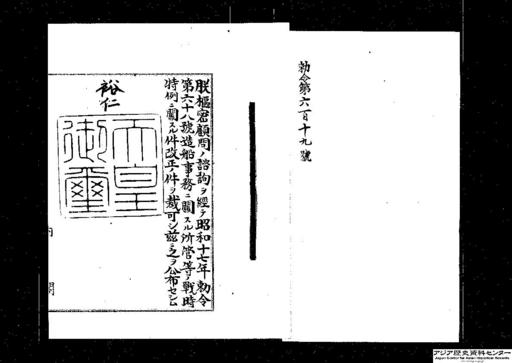 勅令第六百十九號
朕樞密顧問ノ諮詢ヲ經テ昭和十七年勅令
第六十八號造船事務ニ關スル所管等ノ戰時
特例ニ關スル件改正ノ件ヲ裁可シ茲ニ之ヲ公布セシム
裕仁
天皇
御璽
内閣
アジア歴史資料センター
Japan Center for Asian Historical Records